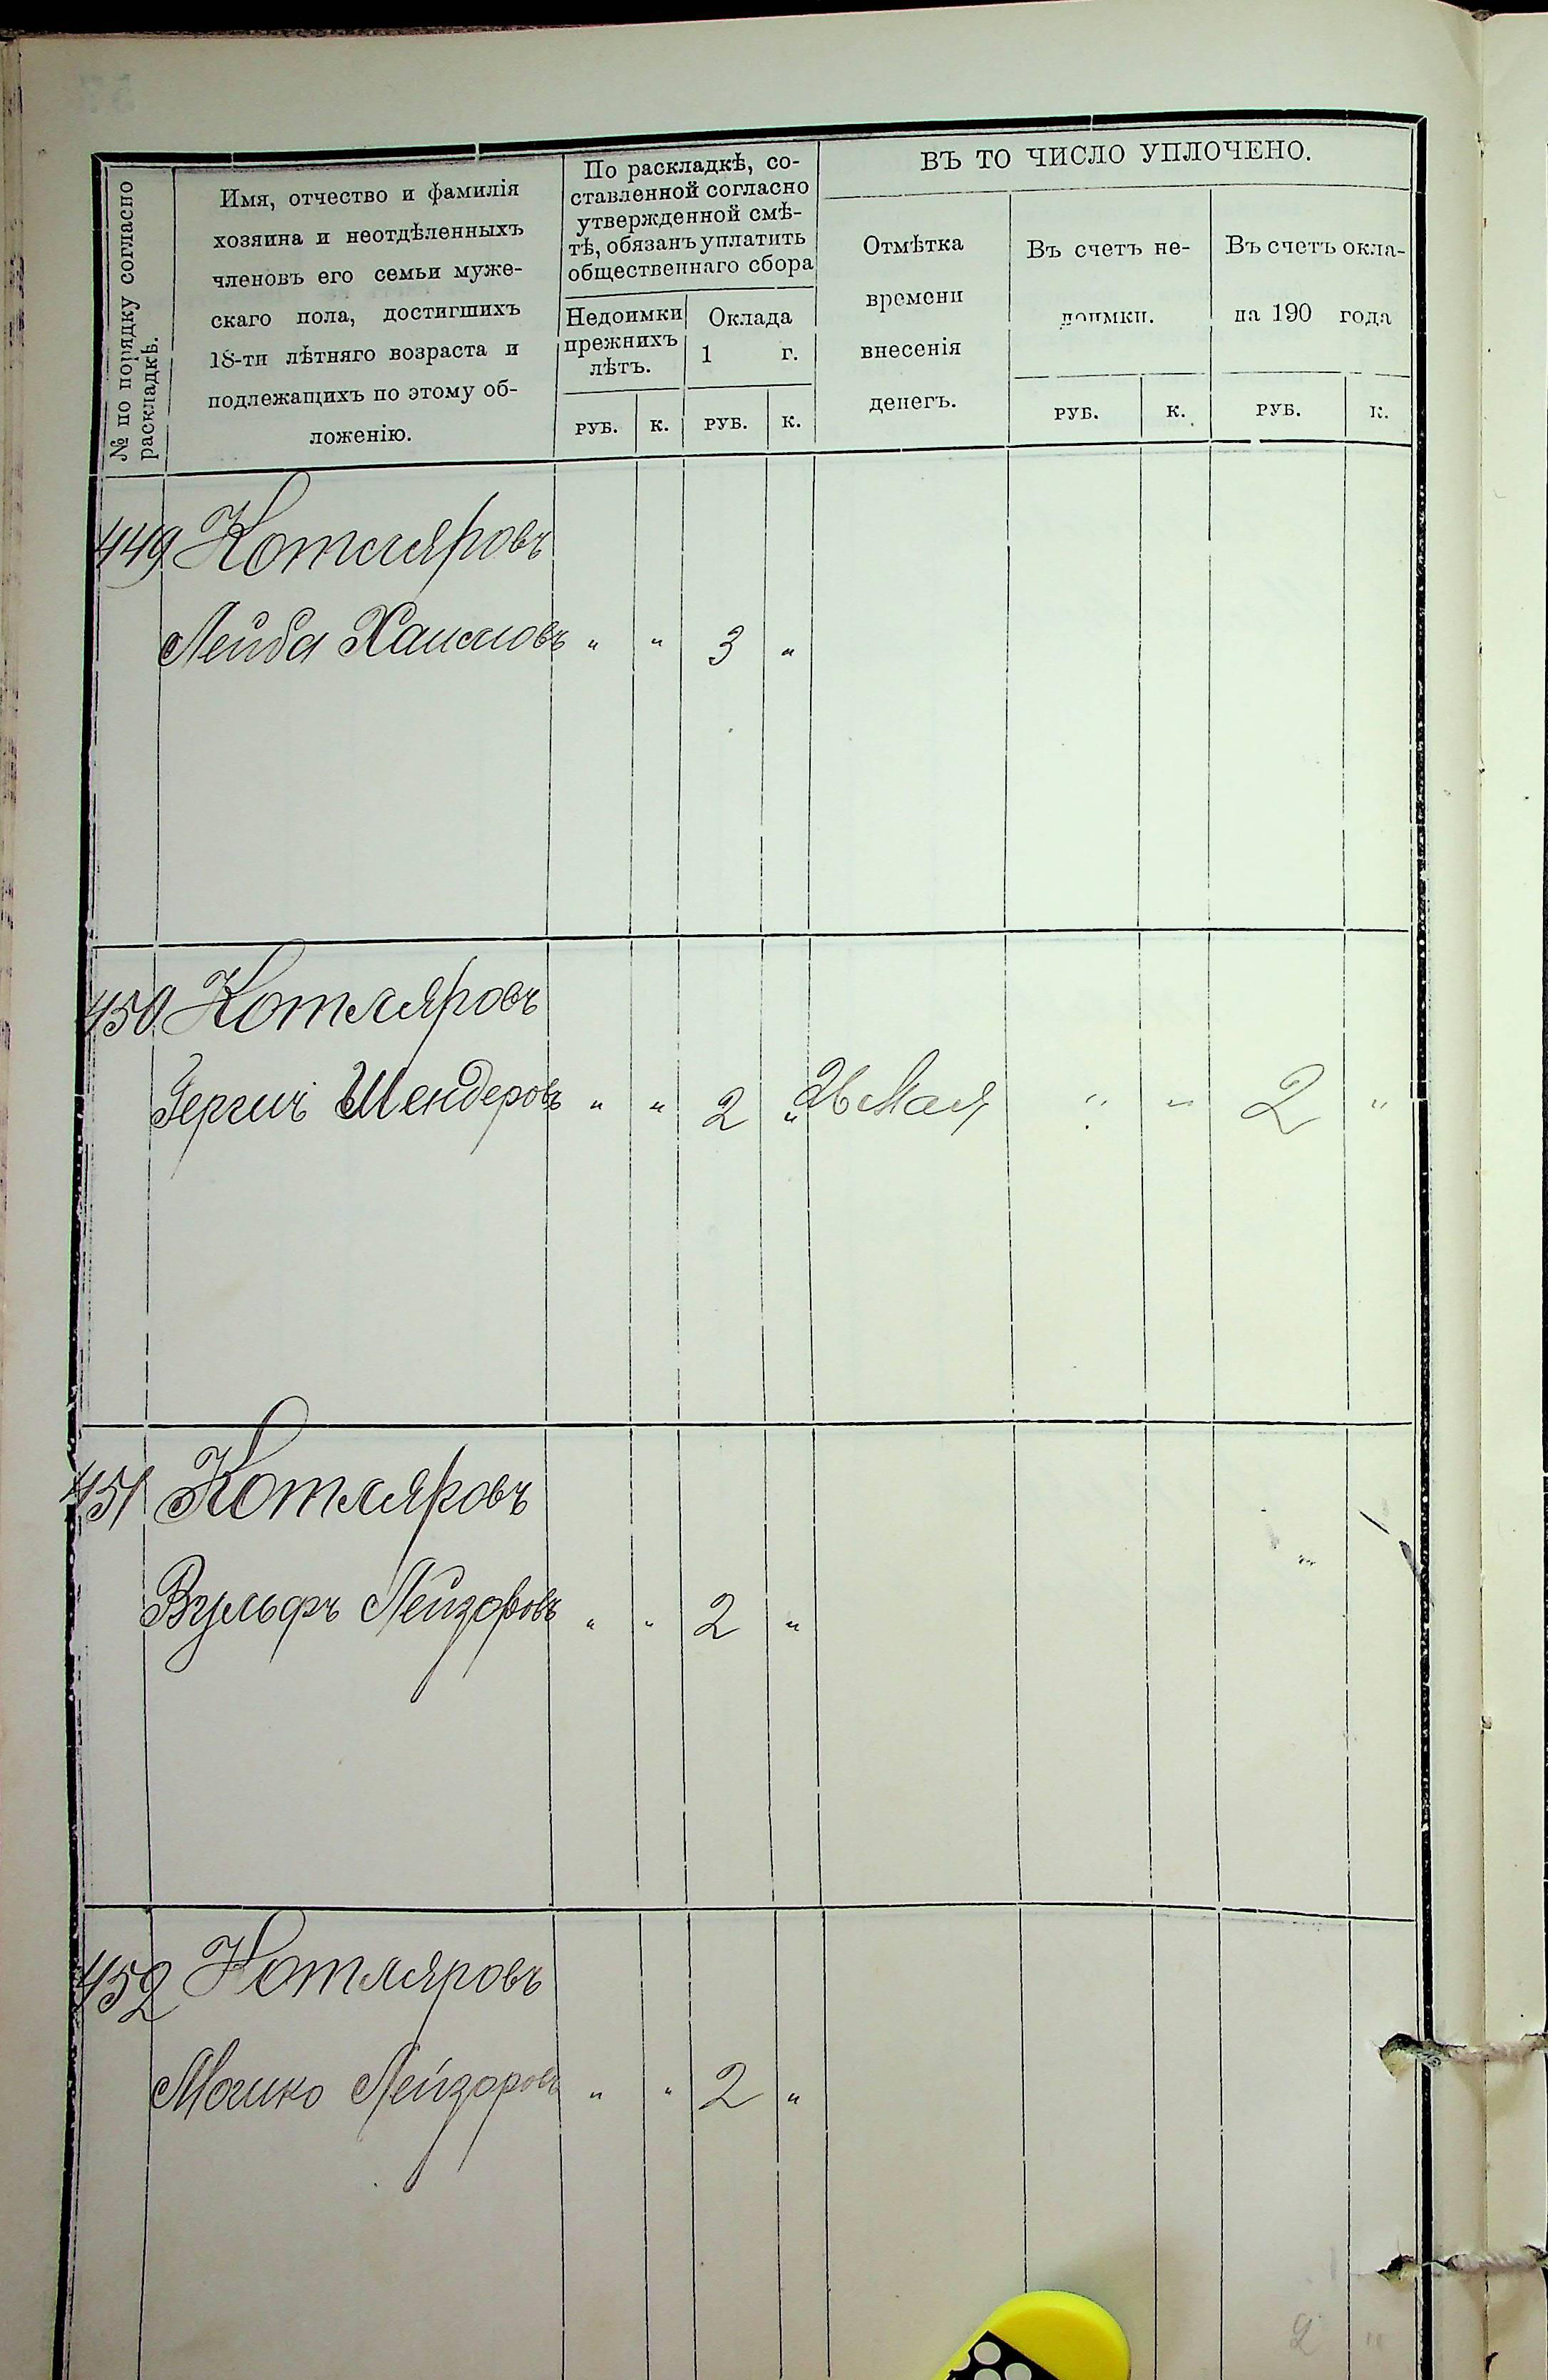 № по порядку согласно раскладкѣ.
Имя, отчество и фамилія
хозяина и неотдѣленныхъ
членовъ его семьи муже-
скаго пола, достигшихъ
18-ти лѣтняго возраста и
подлежащихъ по этому об-
ложенію.
По раскладкѣ, со-
ставленной согласно
утвержденной смѣ-
тѣ, обязанъ уплатить
общественнаго сбора
Недоимки
прежнихъ
лѣтъ.
Оклада
1 г.
РУБ. К. РУБ. К.
ВЪ ТО ЧИСЛО УПЛОЧЕНО.
Отмѣтка
времени
внесенія
денегъ.
Въ счетъ не-
доимки.
Въ счетъ окла-
на 190 года
РУБ. К. РУБ. К.
449 Котляровъ
Лейба Хаимовъ " " 3 "
450 Котляровъ
Шендеровъ " " 2 " 26 Мая " " 2 "
451 Котляровъ
Вульфъ Лейзоровъ " " 2 "
452 Котляровъ
Мошко Лейзоровъ " " 2 "